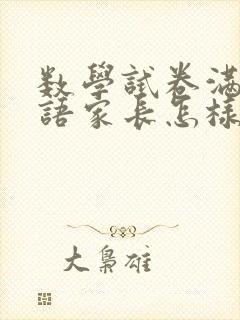 数學試卷滿
語家長怎樣
大梟雄